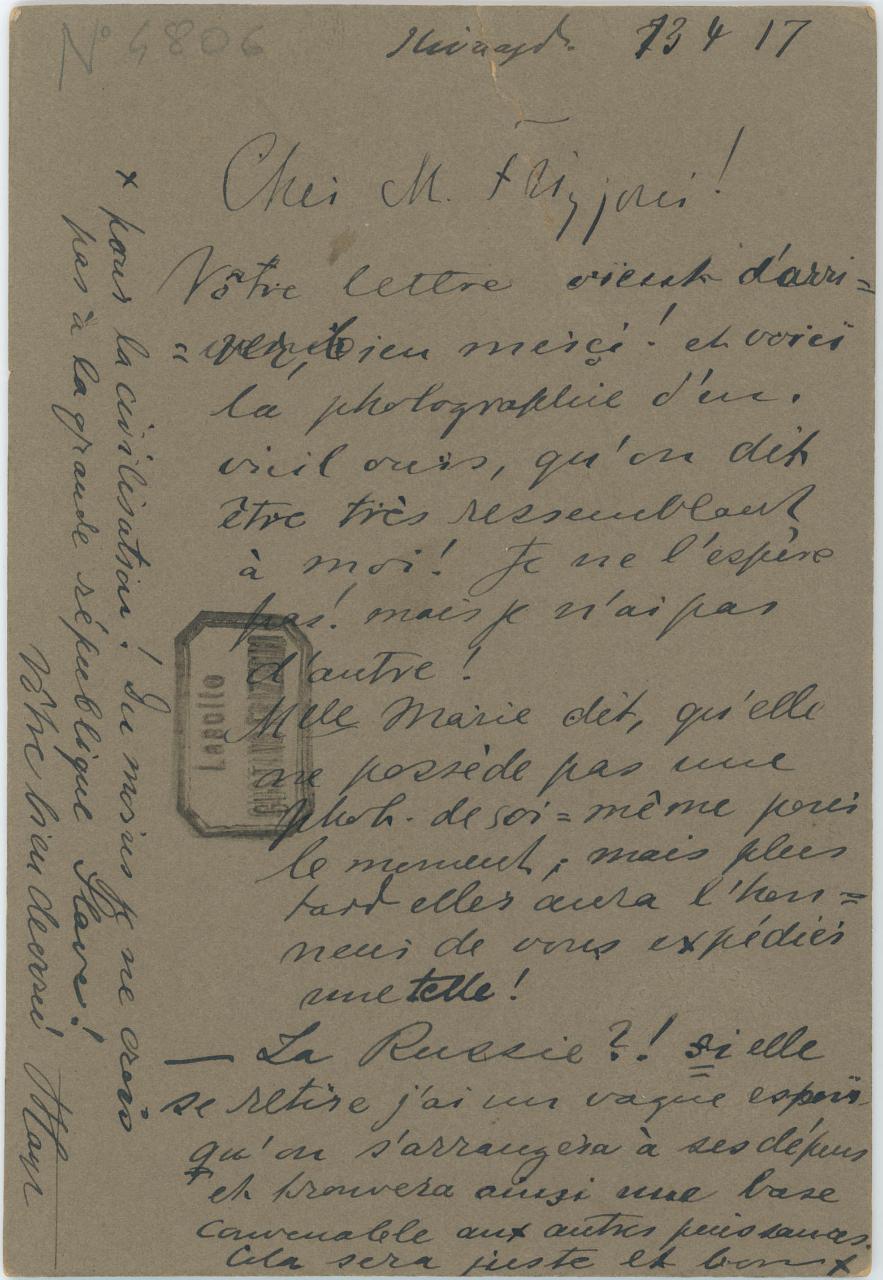 Nº 4806
13 4 17
Cher M.
Vôtre lettre vient d'arri=
=ver, bien merci! et voici
la photographie d'un
vieil ours, qu'on dit
être très ressemblant
à moi! Je ne l'espère
pas! mais je n'ai pas
d'autre!
Mlle Marie dit, qu'elle
ne possède pas une
phot. de soi=même pour
le moment; mais plus
tard elle aura l'hon=
neur de vous expédier
une telle!
— La Russie?! si elle
se retire j'ai un vague espoir
qu'on s'arrangera à ses dépens
et trouvera ainsi une base
convenable aux autres puissances.
Cela sera juste et bon x
x pour la civilisation! Du moins je ne crois
pas à la grande république slave!
Vôtre bien dévoué Mayr
Lapolto